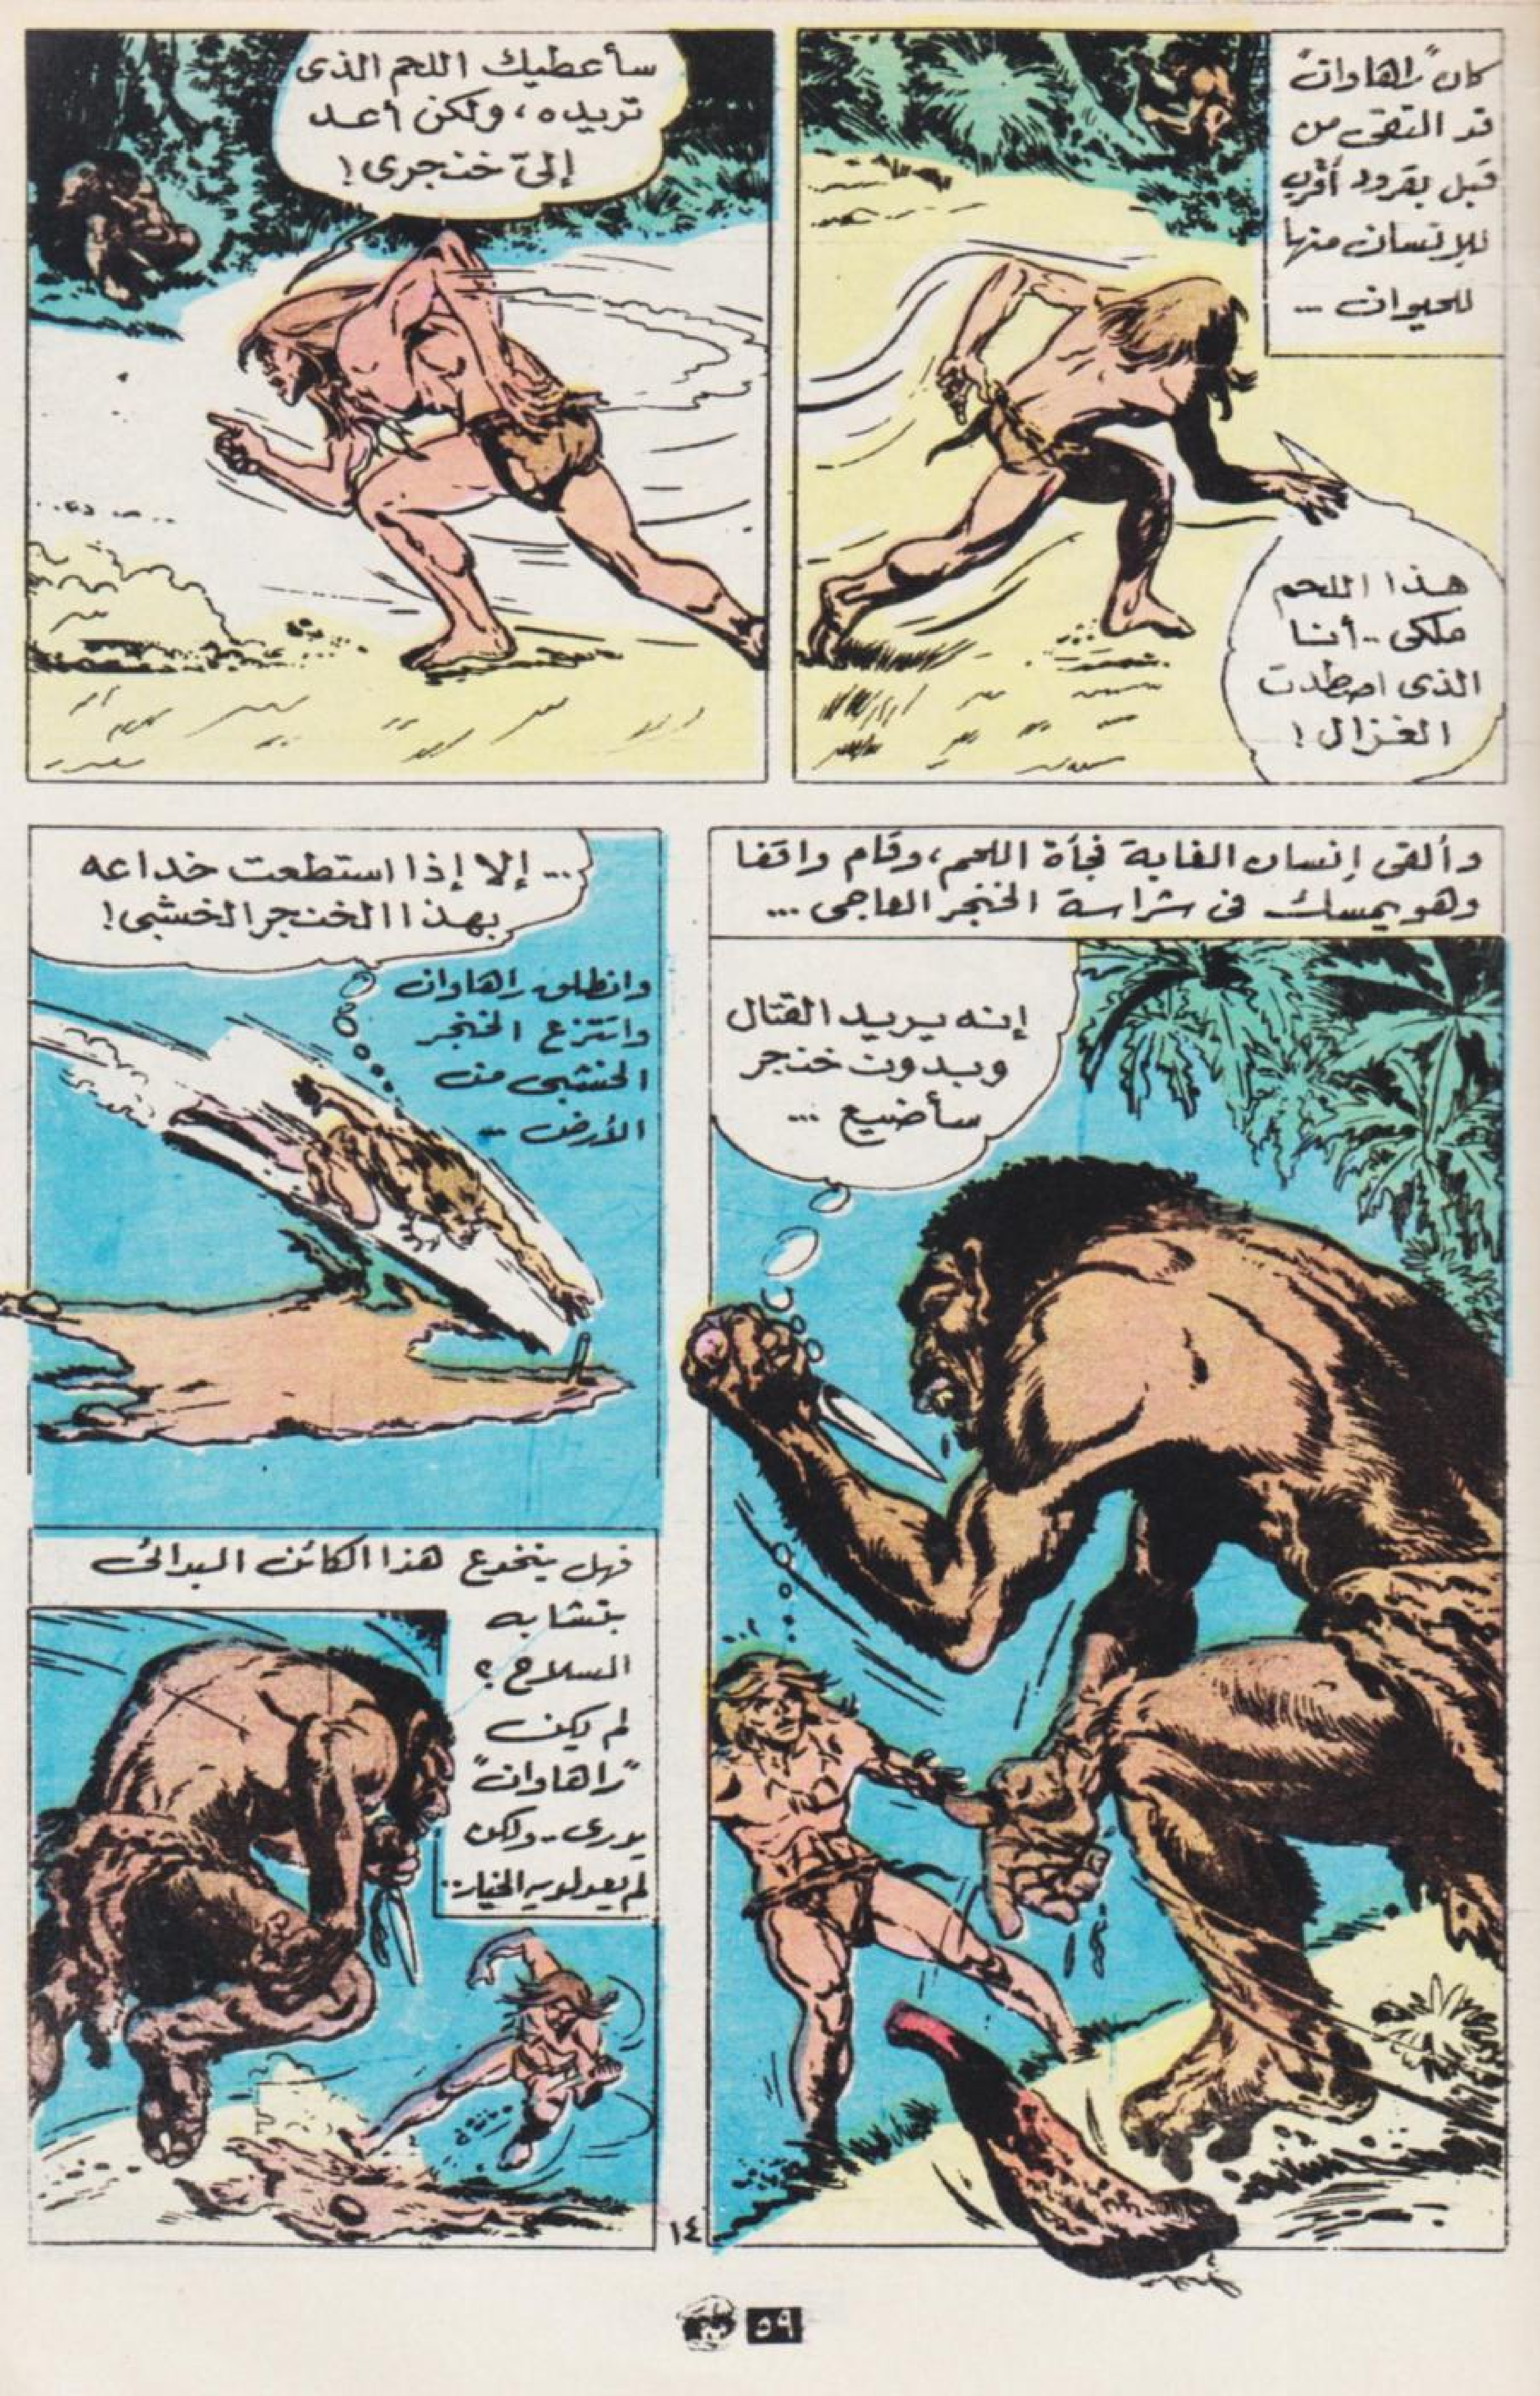 كان "راهاوان"
قد التقى من
قبل بقرود أقرب
للإنسان منها
للحيوان ...
هذا اللحم
ملكى .. أنا
الذى اصطدت
الغزال !
سأعطيك اللحم الذى
تريده ، ولكن أعد
إلىّ خنجرى !
وألقى إنسان الغابة فجأة اللحم ، وقام واقفا
وهو يمسك فى شراسة الخنجر العاجى ...
إنه يريد القتال
وبدون خنجر
سأضيع ...
... إلا إذا استطعت خداعه
بهذا الخنجر الخشبى !
وانطلق راهاوان
وانتزع الخنجر
الخشبى من
الأرض ..
فهل ينخدع هذا الكائن البدائى
بتشابه
السلاح ؟
لم يكن
"راهاوان"
يدرى .. ولكن
لم يعد لديه الخيار ..
١٤
٥٩